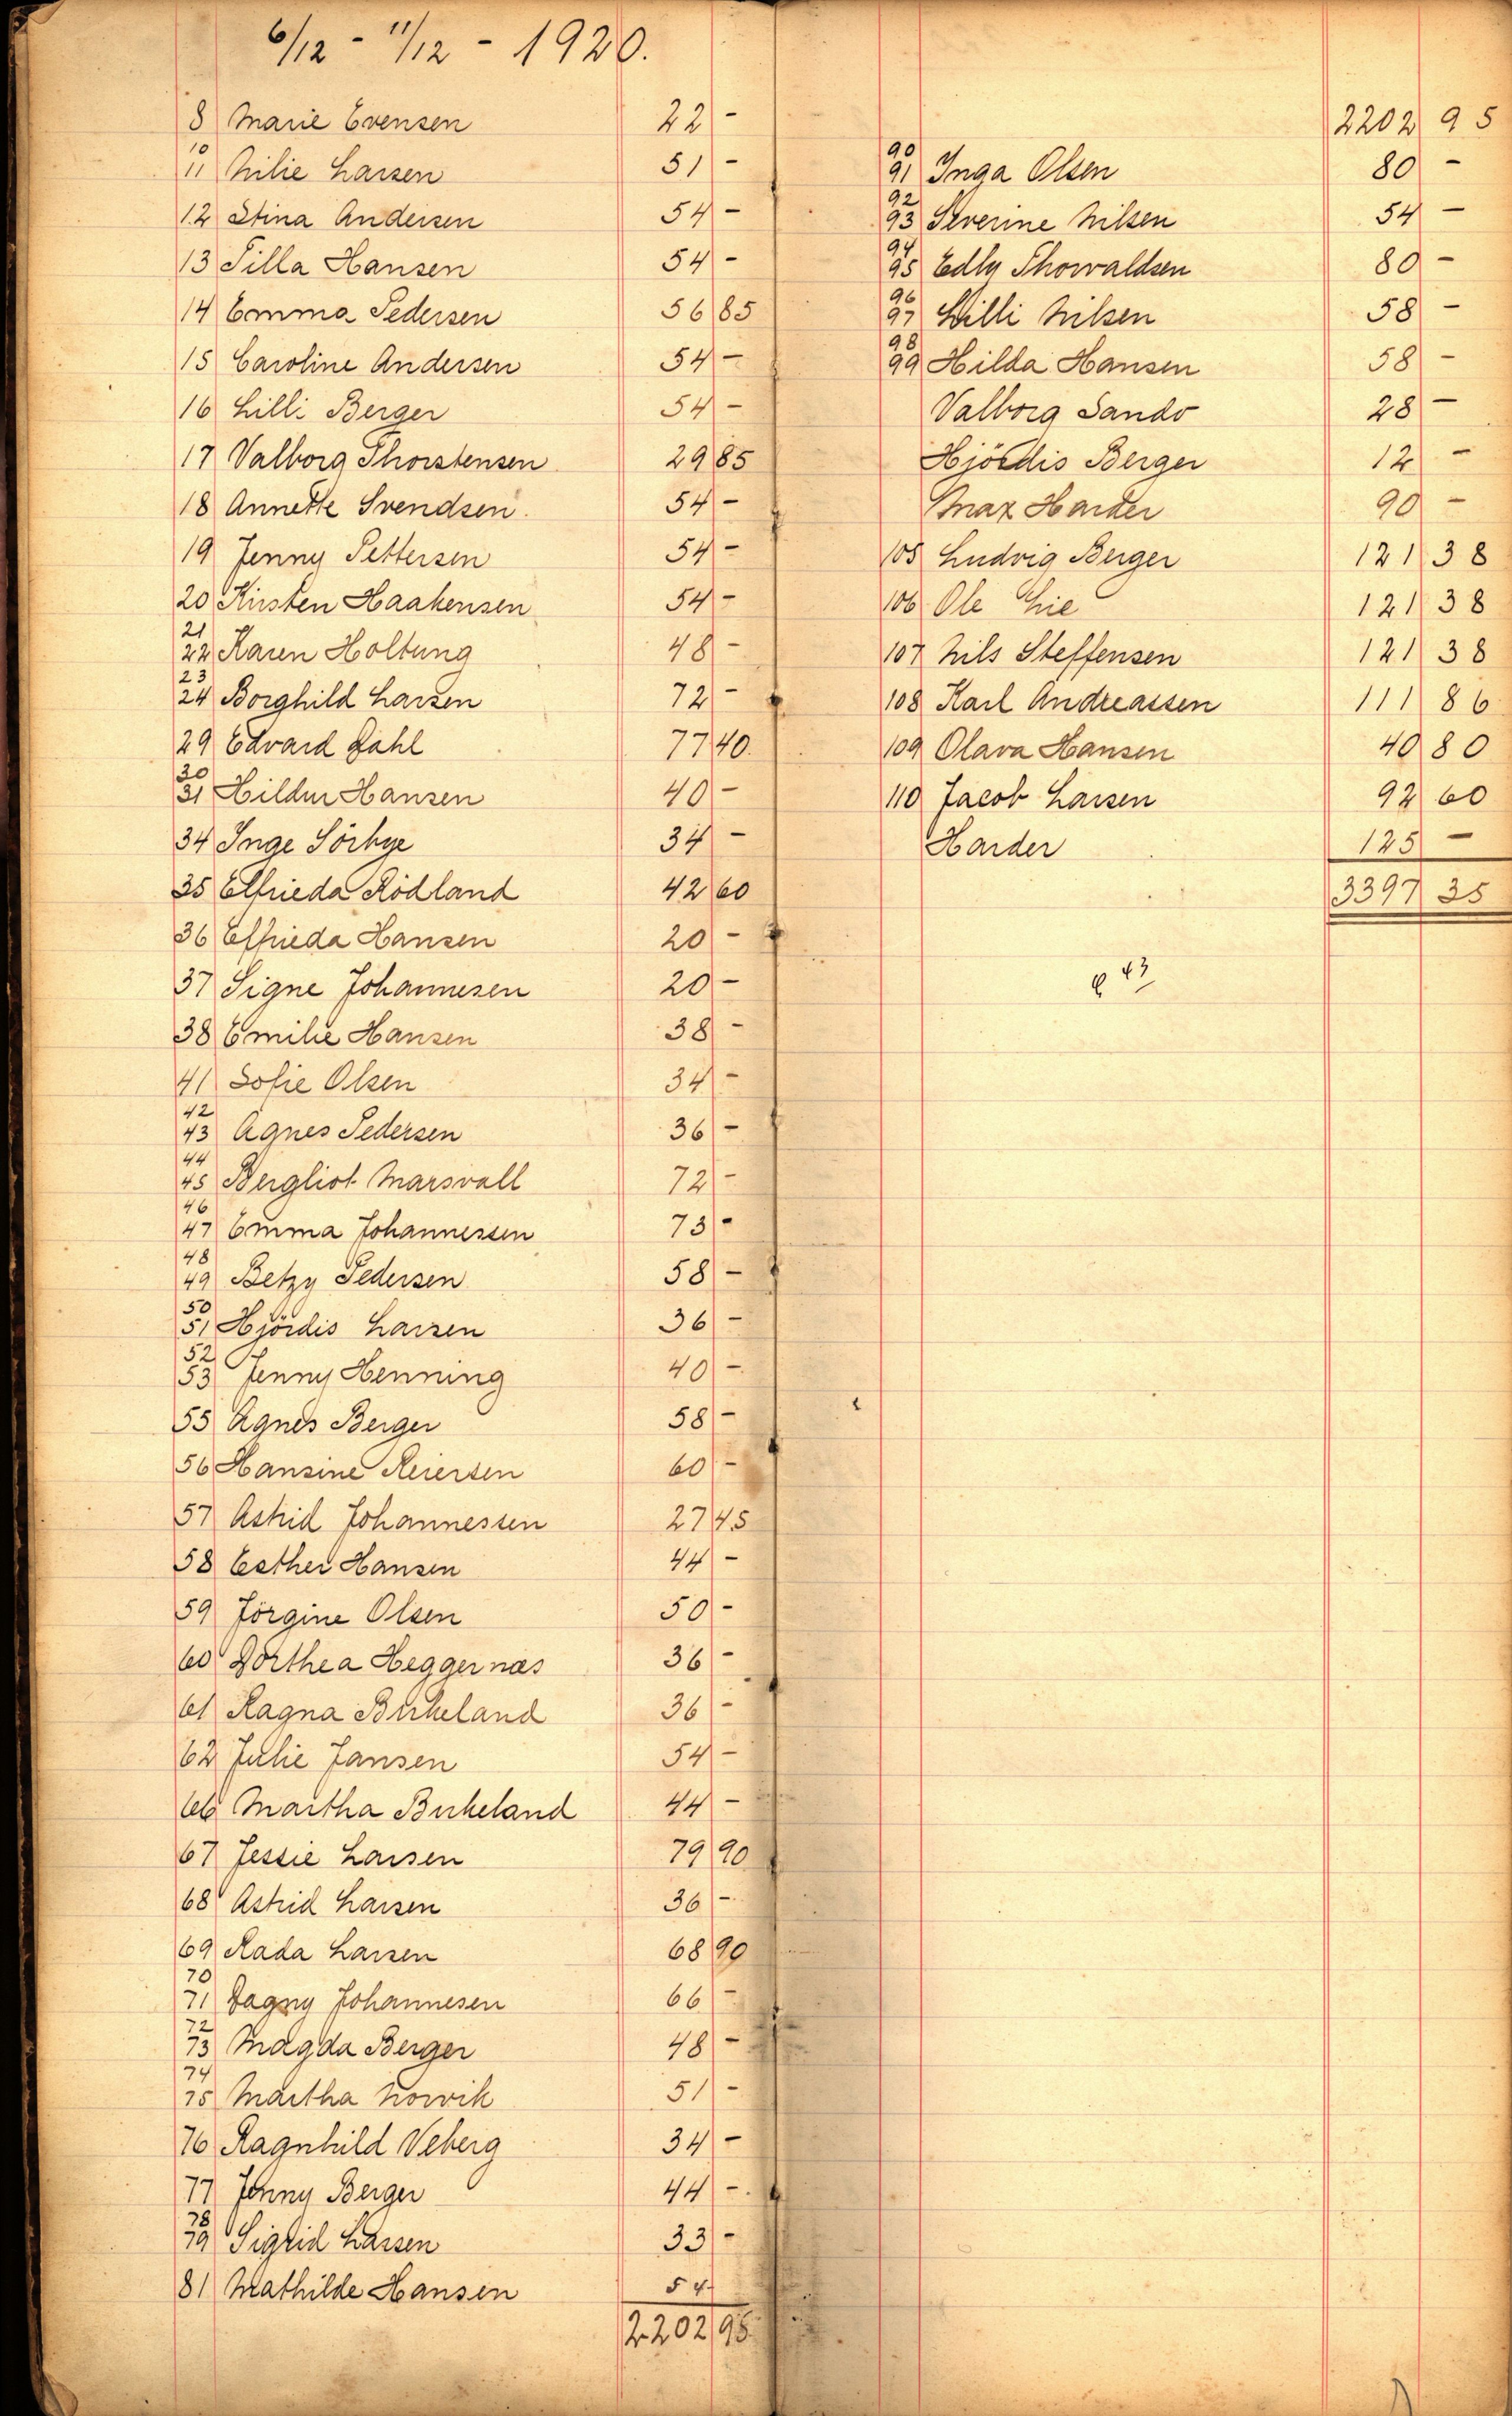 6/12 - 11/12 - 1920.
8 Marie Evensen 22 -
10
11 Milie Larsen 51 -
12 Stina Andersen 54 -
13 Tilla Hansen 54 -
14 Emma Pedersen 56 85
15 Caroline Andersen 54 -
16 Lilli Berger 54 -
17 Valborg Thorstensen 29 85
18 Annette Svendsen. 54 -
19 Jenny Pettersen 54 -
20 Kirsten Haakensen 54 -
21
22 Karen Holtung 48 -
23
24 Borghild Larsen 72 -
29 Edvard Dahl 77 40.
30
31 Hildur Hansen 40 -
34 Inge Sörbye 34 -
35 Elfrieda Rödland 42 60
36 Elfrieda Hansen 20 -
37 Signe Johannesen 20 -
38 Emilie Hansen 38 -
41 Sofie Olsen 34 -
42
43 Agnes Pedersen 36 -
44
45 Bergliot Marsvall 72 -
46
47 Emma Johannessen 73 -
48
49 Betzy Pedersen 58 -
50
51 Hjördis Larsen 36 -
52
53 Jenny Henning 40 -
55 Agnes Berger 58 -
56 Hansine Reiersen 60 -
57 Astrid Johannessen 27 45
58 Esther Hansen 44 -
59 Jörgine Olsen 50 -
60 Dorthea Heggernæs 36 -
61 Ragna Birkeland 36 -
62 Julie Jansen 54 -
66 Martha Birkeland 44 -
67 Jessie Larsen 79 90
68 Astrid Larsen 36 -
69 Rada Larsen 68 90
70
71 Dagny Johannesen 66 -
72
73 Magda Berger 48 -
74
75 Martha Norvik 51 -
76 Ragnhild Veberg 34 -
77 Jenny Berger 44 -
78
79 Sigrid Larsen 33 -
81 Mathilde Hansen 54
2202 95
2202 95
90
91 Inga Olsen 80 -
92
93 Severine Nilsen 54 -
94
95 Edly Thorvaldsen 80 -
96
97 Lilli Nilsen 58 -
98
99 Hilda Hansen 58 -
Valborg Sando 28 -
Hjördis Berger 12 -
Max Harder 90 -
105 Ludvig Berger 121 38
106 Ole Lie 121 38
107 Nils Steffensen 121 38
108 Karl Andreassen 111 86
109 Olava Hansen 40 80
110 Jacob Larsen 92 60
Harder 125 -
3397 35